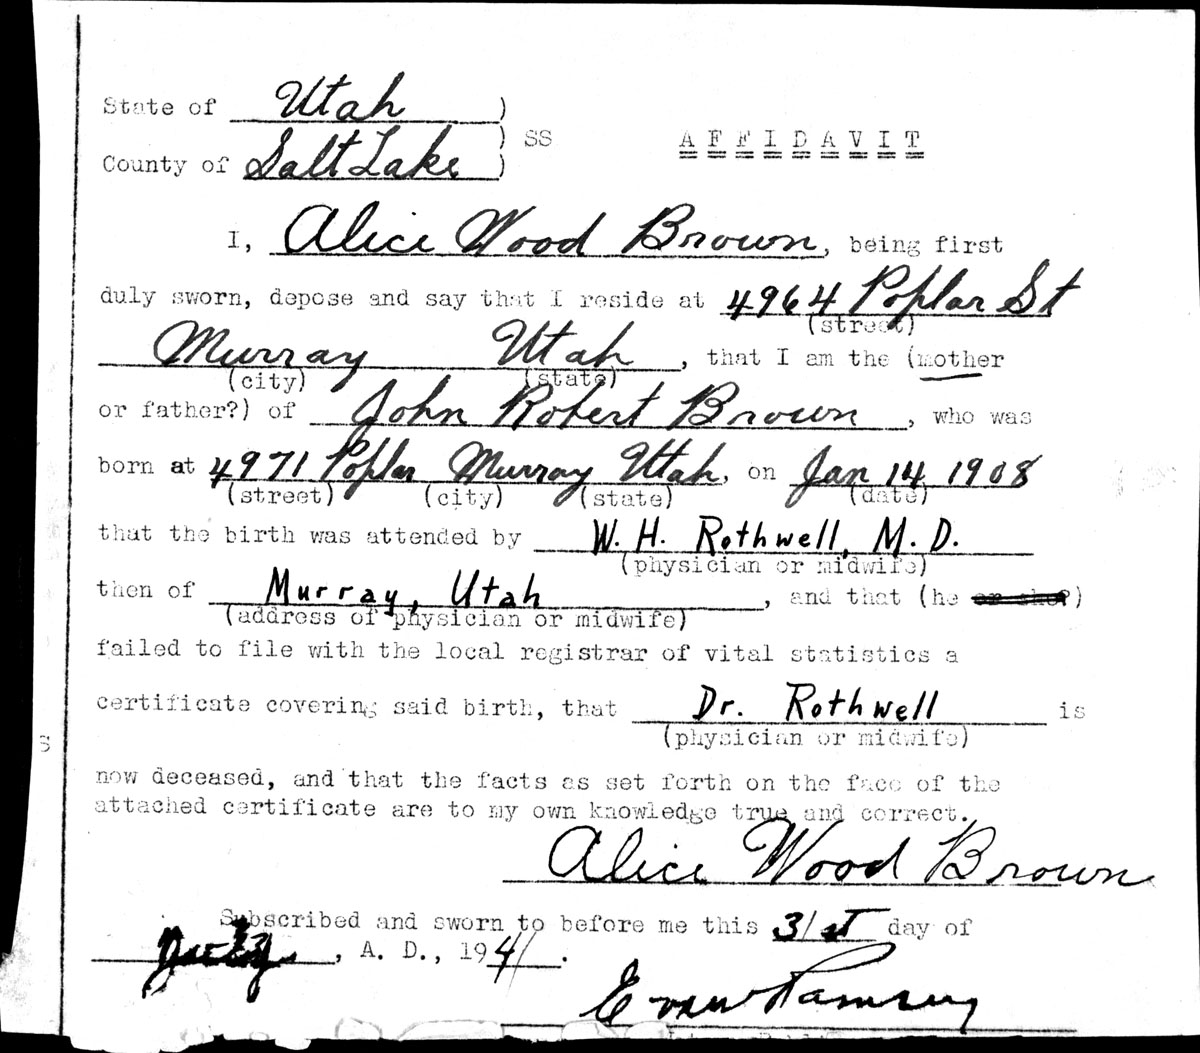 State of Utah )
) SS AFFIDAVIT
County of Salt Lake )
I, Alice Wood Brown, being first
duly sworn, depose and say that I reside at 4964 Poplar St
(street)
Murray Utah, that I am the (mother
(city) (state)
or father?) of John Robert Brown, who was
born at 4971 Poplar Murray Utah, on Jan 14 1908
(street) (city) (state) (date)
that the birth was attended by W. H. Rothwell, M. D.
(physician or midwife)
then of Murray, Utah, and that (he or she?)
(address of physician or midwife)
failed to file with the local registrar of vital statistics a
certificate covering said birth, that Dr. Rothwell is
(physician or midwife)
S
now deceased, and that the facts as set forth on the face of the
attached certificate are to my own knowledge true and correct.
Alice Wood Brown
Subscribed and sworn to before me this 31st day of
, A. D., 1941.
Evan Ramsey